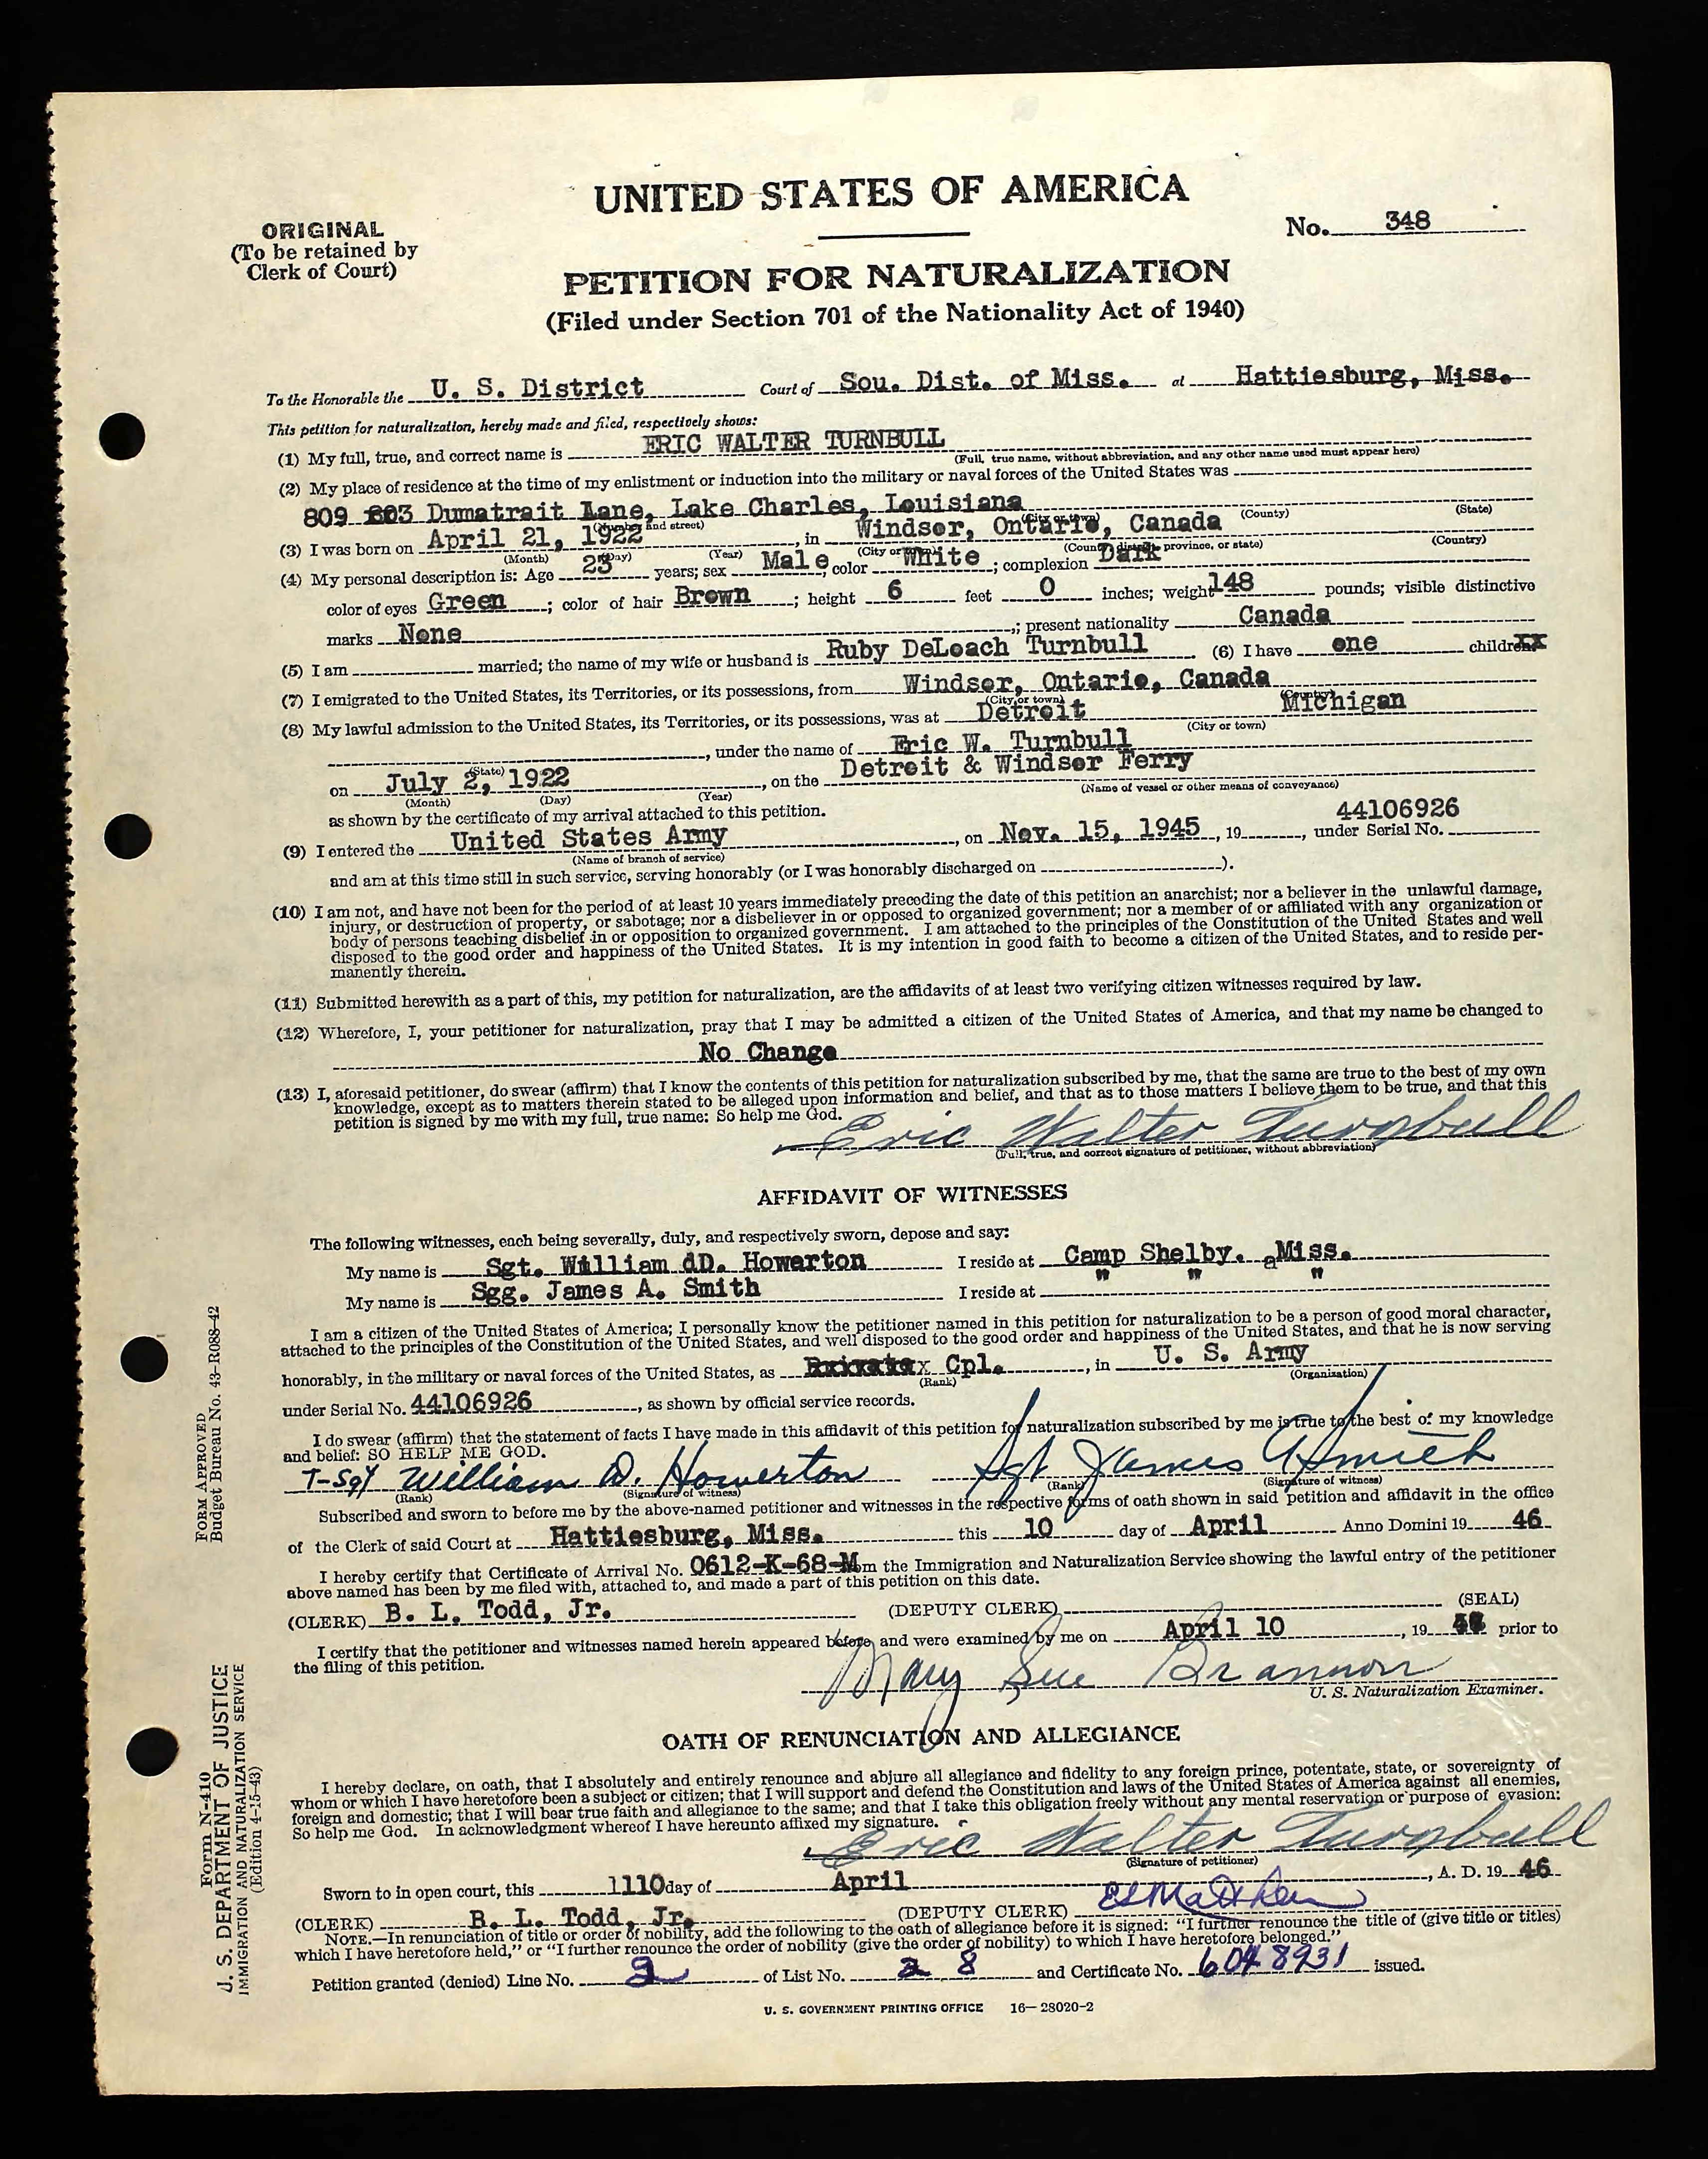 UNITED STATES OF AMERICA
ORIGINAL
(To be retained by
Clerk of Court)
No. 348
PETITION FOR NATURALIZATION
(Filed under Section 701 of the Nationality Act of 1940)
To the Honorable the U. S. District Court of Sou. Dist. of Miss. at Hattiesburg, Miss.
This petition for naturalization, hereby made and filed, respectively shows:
(1) My full, true, and correct name is ERIC WALTER TURNBULL
(Full, true name, without abbreviation, and any other name used must appear here)
(2) My place of residence at the time of my enlistment or induction into the military or naval forces of the United States was
809 803 Dumatrait Lane, Lake Charles, Louisiana
(Number and street) (City or town) (County) (State)
(3) I was born on April 21, 1922, in Windsor, Ontario, Canada
(Month) (Day) (Year) (City or town) (County, district, province, or state) (Country)
(4) My personal description is: Age 23 years; sex Male, color White; complexion Dark
color of eyes Green; color of hair Brown; height 6 feet 0 inches; weight 148 pounds; visible distinctive
marks None; present nationality Canada
(5) I am married; the name of my wife or husband is Ruby DeLoach Turnbull (6) I have one childrenxx
(7) I emigrated to the United States, its Territories, or its possessions, from Windsor, Ontario, Canada
(City or town) (Country)
(8) My lawful admission to the United States, its Territories, or its possessions, was at Detroit Michigan
(City or town)
(State), under the name of Eric W. Turnbull
on July 2, 1922, on the Detroit & Windsor Ferry
(Month) (Day) (Year) (Name of vessel or other means of conveyance)
as shown by the certificate of my arrival attached to this petition.
(9) I entered the United States Army, on Nov. 15, 1945, 19, under Serial No. 44106926
(Name of branch of service)
and am at this time still in such service, serving honorably (or I was honorably discharged on ).
(10) I am not, and have not been for the period of at least 10 years immediately preceding the date of this petition an anarchist; nor a believer in the unlawful damage,
injury, or destruction of property, or sabotage; nor a disbeliever in or opposed to organized government; nor a member of or affiliated with any organization or
body of persons teaching disbelief in or opposition to organized government. I am attached to the principles of the Constitution of the United States and well
disposed to the good order and happiness of the United States. It is my intention in good faith to become a citizen of the United States, and to reside per-
manently therein.
(11) Submitted herewith as a part of this, my petition for naturalization, are the affidavits of at least two verifying citizen witnesses required by law.
(12) Wherefore, I, your petitioner for naturalization, pray that I may be admitted a citizen of the United States of America, and that my name be changed to
No Change
(13) I, aforesaid petitioner, do swear (affirm) that I know the contents of this petition for naturalization subscribed by me, that the same are true to the best of my own
knowledge, except as to matters therein stated to be alleged upon information and belief, and that as to those matters I believe them to be true, and that this
petition is signed by me with my full, true name: So help me God.
Eric Walter Turnbull
(Full, true, and correct signature of petitioner, without abbreviation)
AFFIDAVIT OF WITNESSES
The following witnesses, each being severally, duly, and respectively sworn, depose and say:
My name is Sgt. William dD. Howerton I reside at Camp Shelby. aMiss.
My name is Sgg. James A. Smith I reside at " " "
I am a citizen of the United States of America; I personally know the petitioner named in this petition for naturalization to be a person of good moral character,
attached to the principles of the Constitution of the United States, and well disposed to the good order and happiness of the United States, and that he is now serving
honorably, in the military or naval forces of the United States, as Cpl., in U. S. Army
(Rank) (Organization)
under Serial No. 44106926, as shown by official service records.
I do swear (affirm) that the statement of facts I have made in this affidavit of this petition for naturalization subscribed by me is true to the best of my knowledge
and belief: SO HELP ME GOD.
T-Sgt William D. Howerton Sgt James A Smith
(Rank) (Signature of witness) (Rank) (Signature of witness)
Subscribed and sworn to before me by the above-named petitioner and witnesses in the respective forms of oath shown in said petition and affidavit in the office
of the Clerk of said Court at Hattiesburg, Miss. this 10 day of April Anno Domini 19 46
I hereby certify that Certificate of Arrival No. 0612-K-68-M om the Immigration and Naturalization Service showing the lawful entry of the petitioner
above named has been by me filed with, attached to, and made a part of this petition on this date.
(CLERK) B. L. Todd, Jr. (DEPUTY CLERK) (SEAL)
I certify that the petitioner and witnesses named herein appeared before and were examined by me on April 10, 19 prior to
the filing of this petition.
Mary Sue Brannon
U. S. Naturalization Examiner.
OATH OF RENUNCIATION AND ALLEGIANCE
I hereby declare, on oath, that I absolutely and entirely renounce and abjure all allegiance and fidelity to any foreign prince, potentate, state, or sovereignty of
whom or which I have heretofore been a subject or citizen; that I will support and defend the Constitution and laws of the United States of America against all enemies,
foreign and domestic; that I will bear true faith and allegiance to the same; and that I take this obligation freely without any mental reservation or purpose of evasion:
So help me God. In acknowledgment whereof I have hereunto affixed my signature.
Eric Walter Turnbull
(Signature of petitioner)
Sworn to in open court, this 1110 day of April, A. D. 19 46
(CLERK) B. L. Todd, Jr. (DEPUTY CLERK)
NOTE.—In renunciation of title or order of nobility, add the following to the oath of allegiance before it is signed: "I further renounce the title of (give title or titles)
which I have heretofore held," or "I further renounce the order of nobility (give the order of nobility) to which I have heretofore belonged."
Petition granted (denied) Line No. 2 of List No. 8 and Certificate No. 6048931 issued.
U. S. GOVERNMENT PRINTING OFFICE 16—28020-2
FORM APPROVED
Budget Bureau No. 43-R088-42
Form N-410
U. S. DEPARTMENT OF JUSTICE
IMMIGRATION AND NATURALIZATION SERVICE
(Edition 4-15-43)